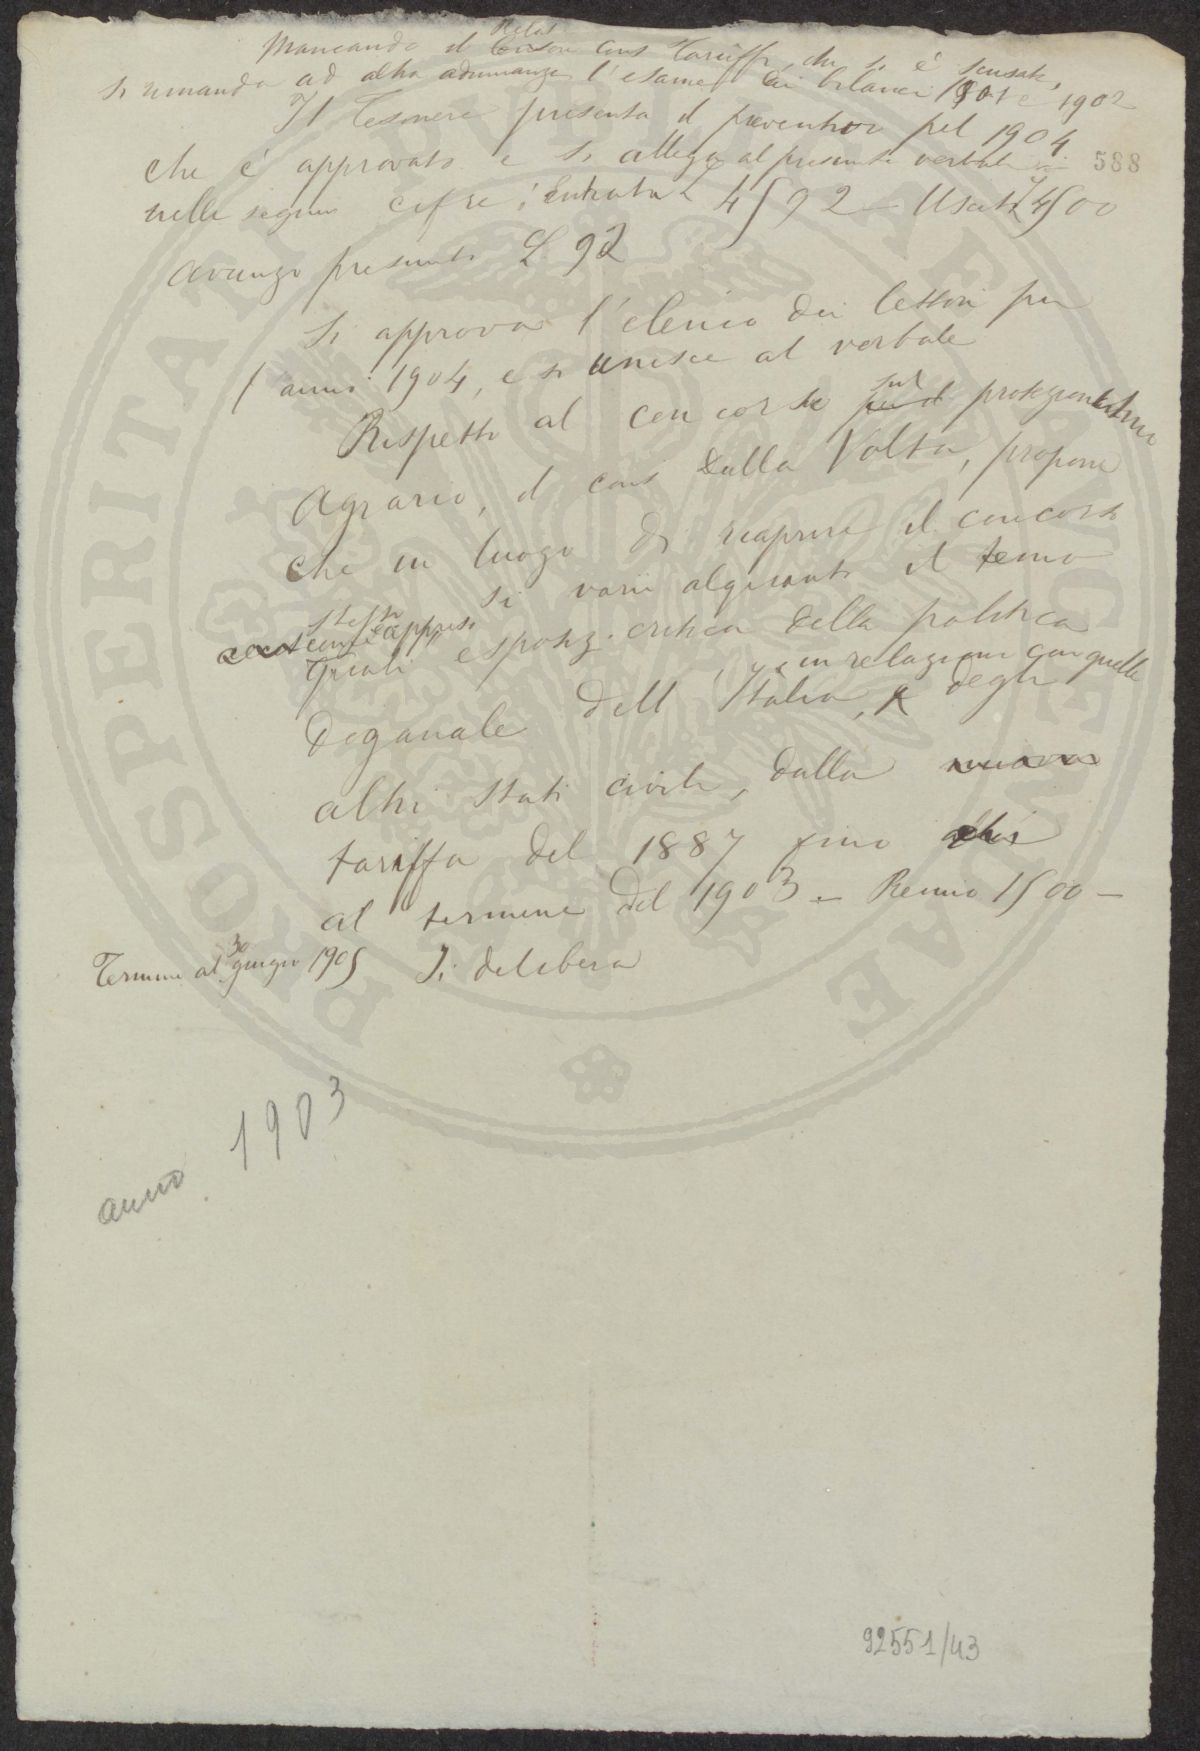 Relat
Mancando il cons Tariffi, che si è scusato,
si rimanda ad altra adunanza l'esame dei bilanci 1901 e 1902
Il Tesoriere presenta il preventivo pel 1904
che è approvato e si allega al presente verbale
588
nelle seguen cifre: Entrata L 4592 - Uscita 4500
avanzo presunto L 92
Si approva l'elenco dei lettori per
l'anno 1904, e si unisce al verbale
sul
Rispetto al concorso protezionismo
Agrario, il cons Dalla Volta, propone
che in luogo di riaprire il concorso
si varii alquanto il tema
stesso
esposiz. critica della politica
in relazione con quelle
Doganale dell'Italia, degli
altri Stati civili, dalla
tariffa del 1887 fino
al termine del 1903 - Premio 1500 -
30
Termine al giugno 1905 Si delibera
anno 1903
92551/43
PROSPERITATI PUBLICAE AUGENDAE